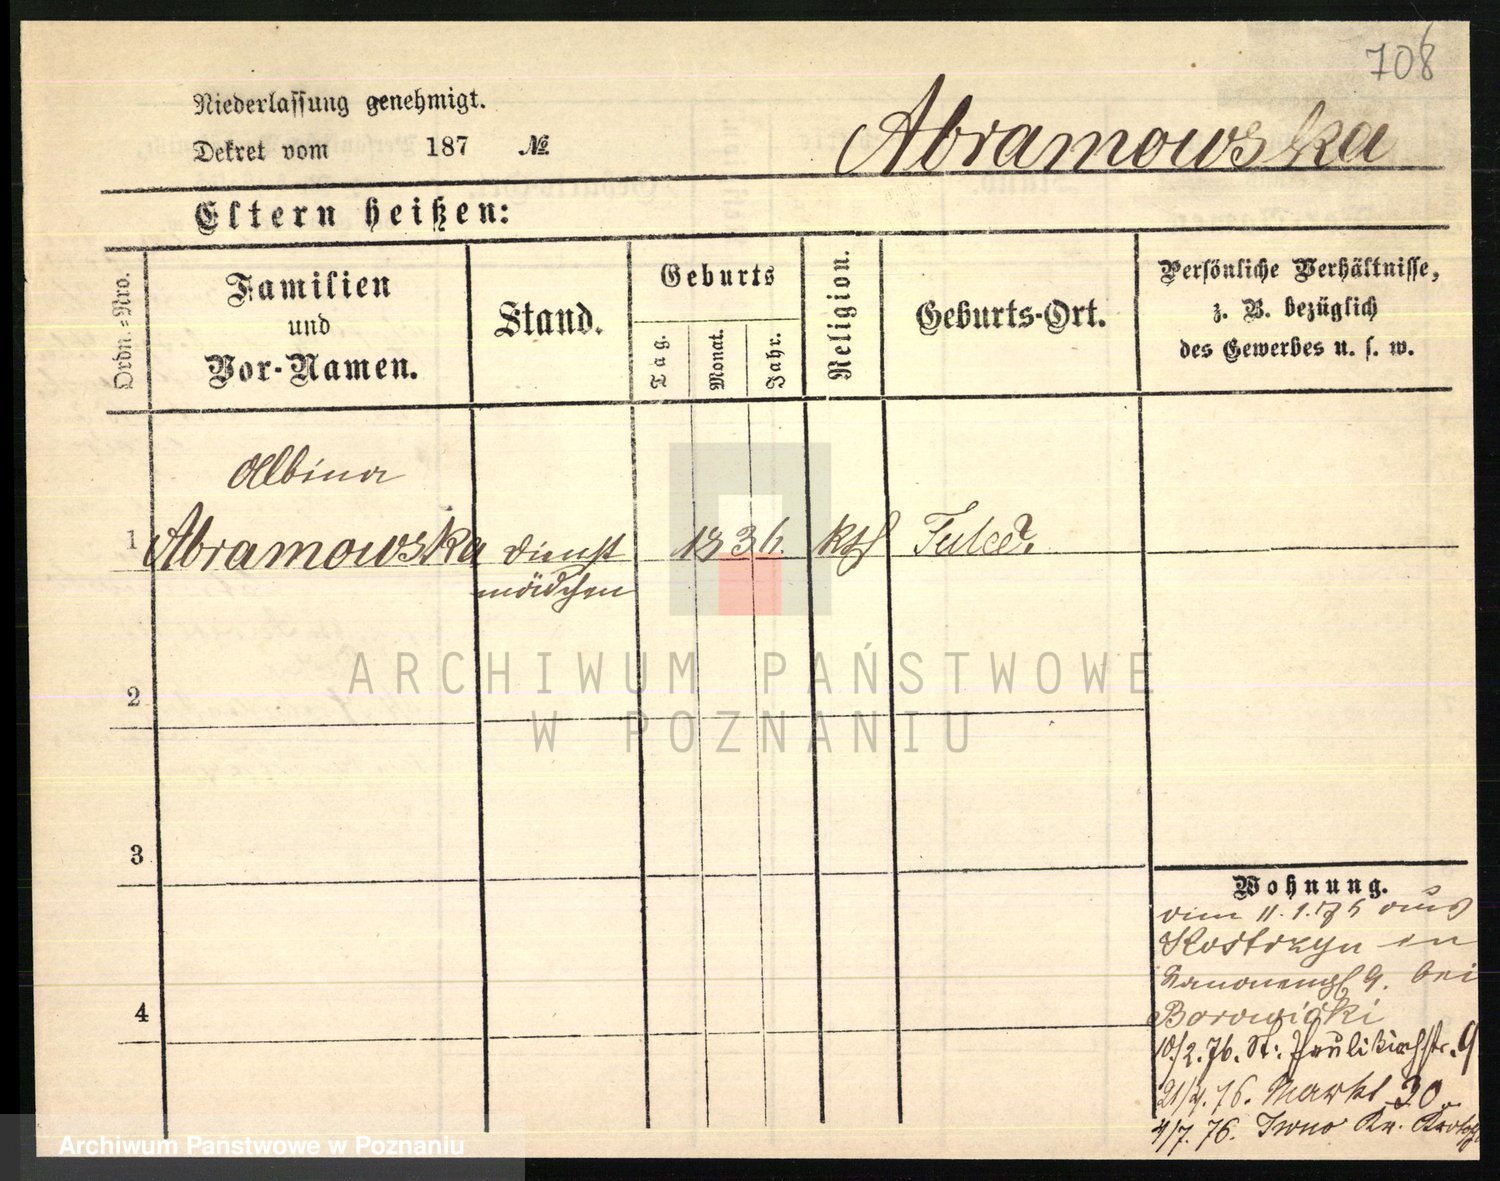 708
Niederlassung genehmigt.
Dekret vom 187 №
Abramowska
Eltern heißen:
Ordn.=Nro.
Familien
und
Vor-Namen.
Stand.
Geburts
Tag.
Monat.
Jahr.
Religion.
Geburts-Ort.
Persönliche Verhältnisse,
z. B. bezüglich
des Gewerbes u. s. w.
Albina
1 Abramowska Dienst 1836. kth
mädchen
2
3
4
Wohnung.
vom 11.1.75 aus
Kostrzyn in
9. bei
Borowicki
10/2.76. St: Paulikirchstr. 9
21/4.76. Markt 30.
4/7.76.
ARCHIWUM PAŃSTWOWE
W POZNANIU
Archiwum Państwowe w Poznaniu